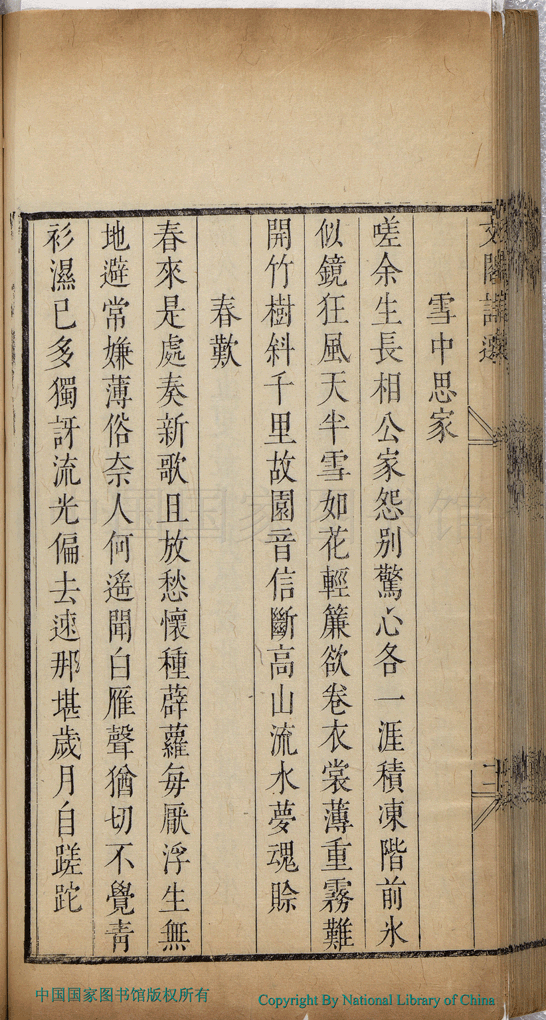 雪中思家
嗟余生長相公家怨别驚心各一涯積凍階前氷
似鏡狂風天半雪如花輕簾欲卷衣裳薄重霧難
開竹樹斜千里故園音信斷高山流水夢魂賒
春歎
春來是處奏新歌且放愁懷種薜蘿每厭浮生無
地避常嫌薄俗奈人何遙聞白雁聲猶切不覺青
衫濕已多獨訝流光偏去速那堪歲月自蹉跎
中国国家图书馆版权所有
Copyright By National Library of China